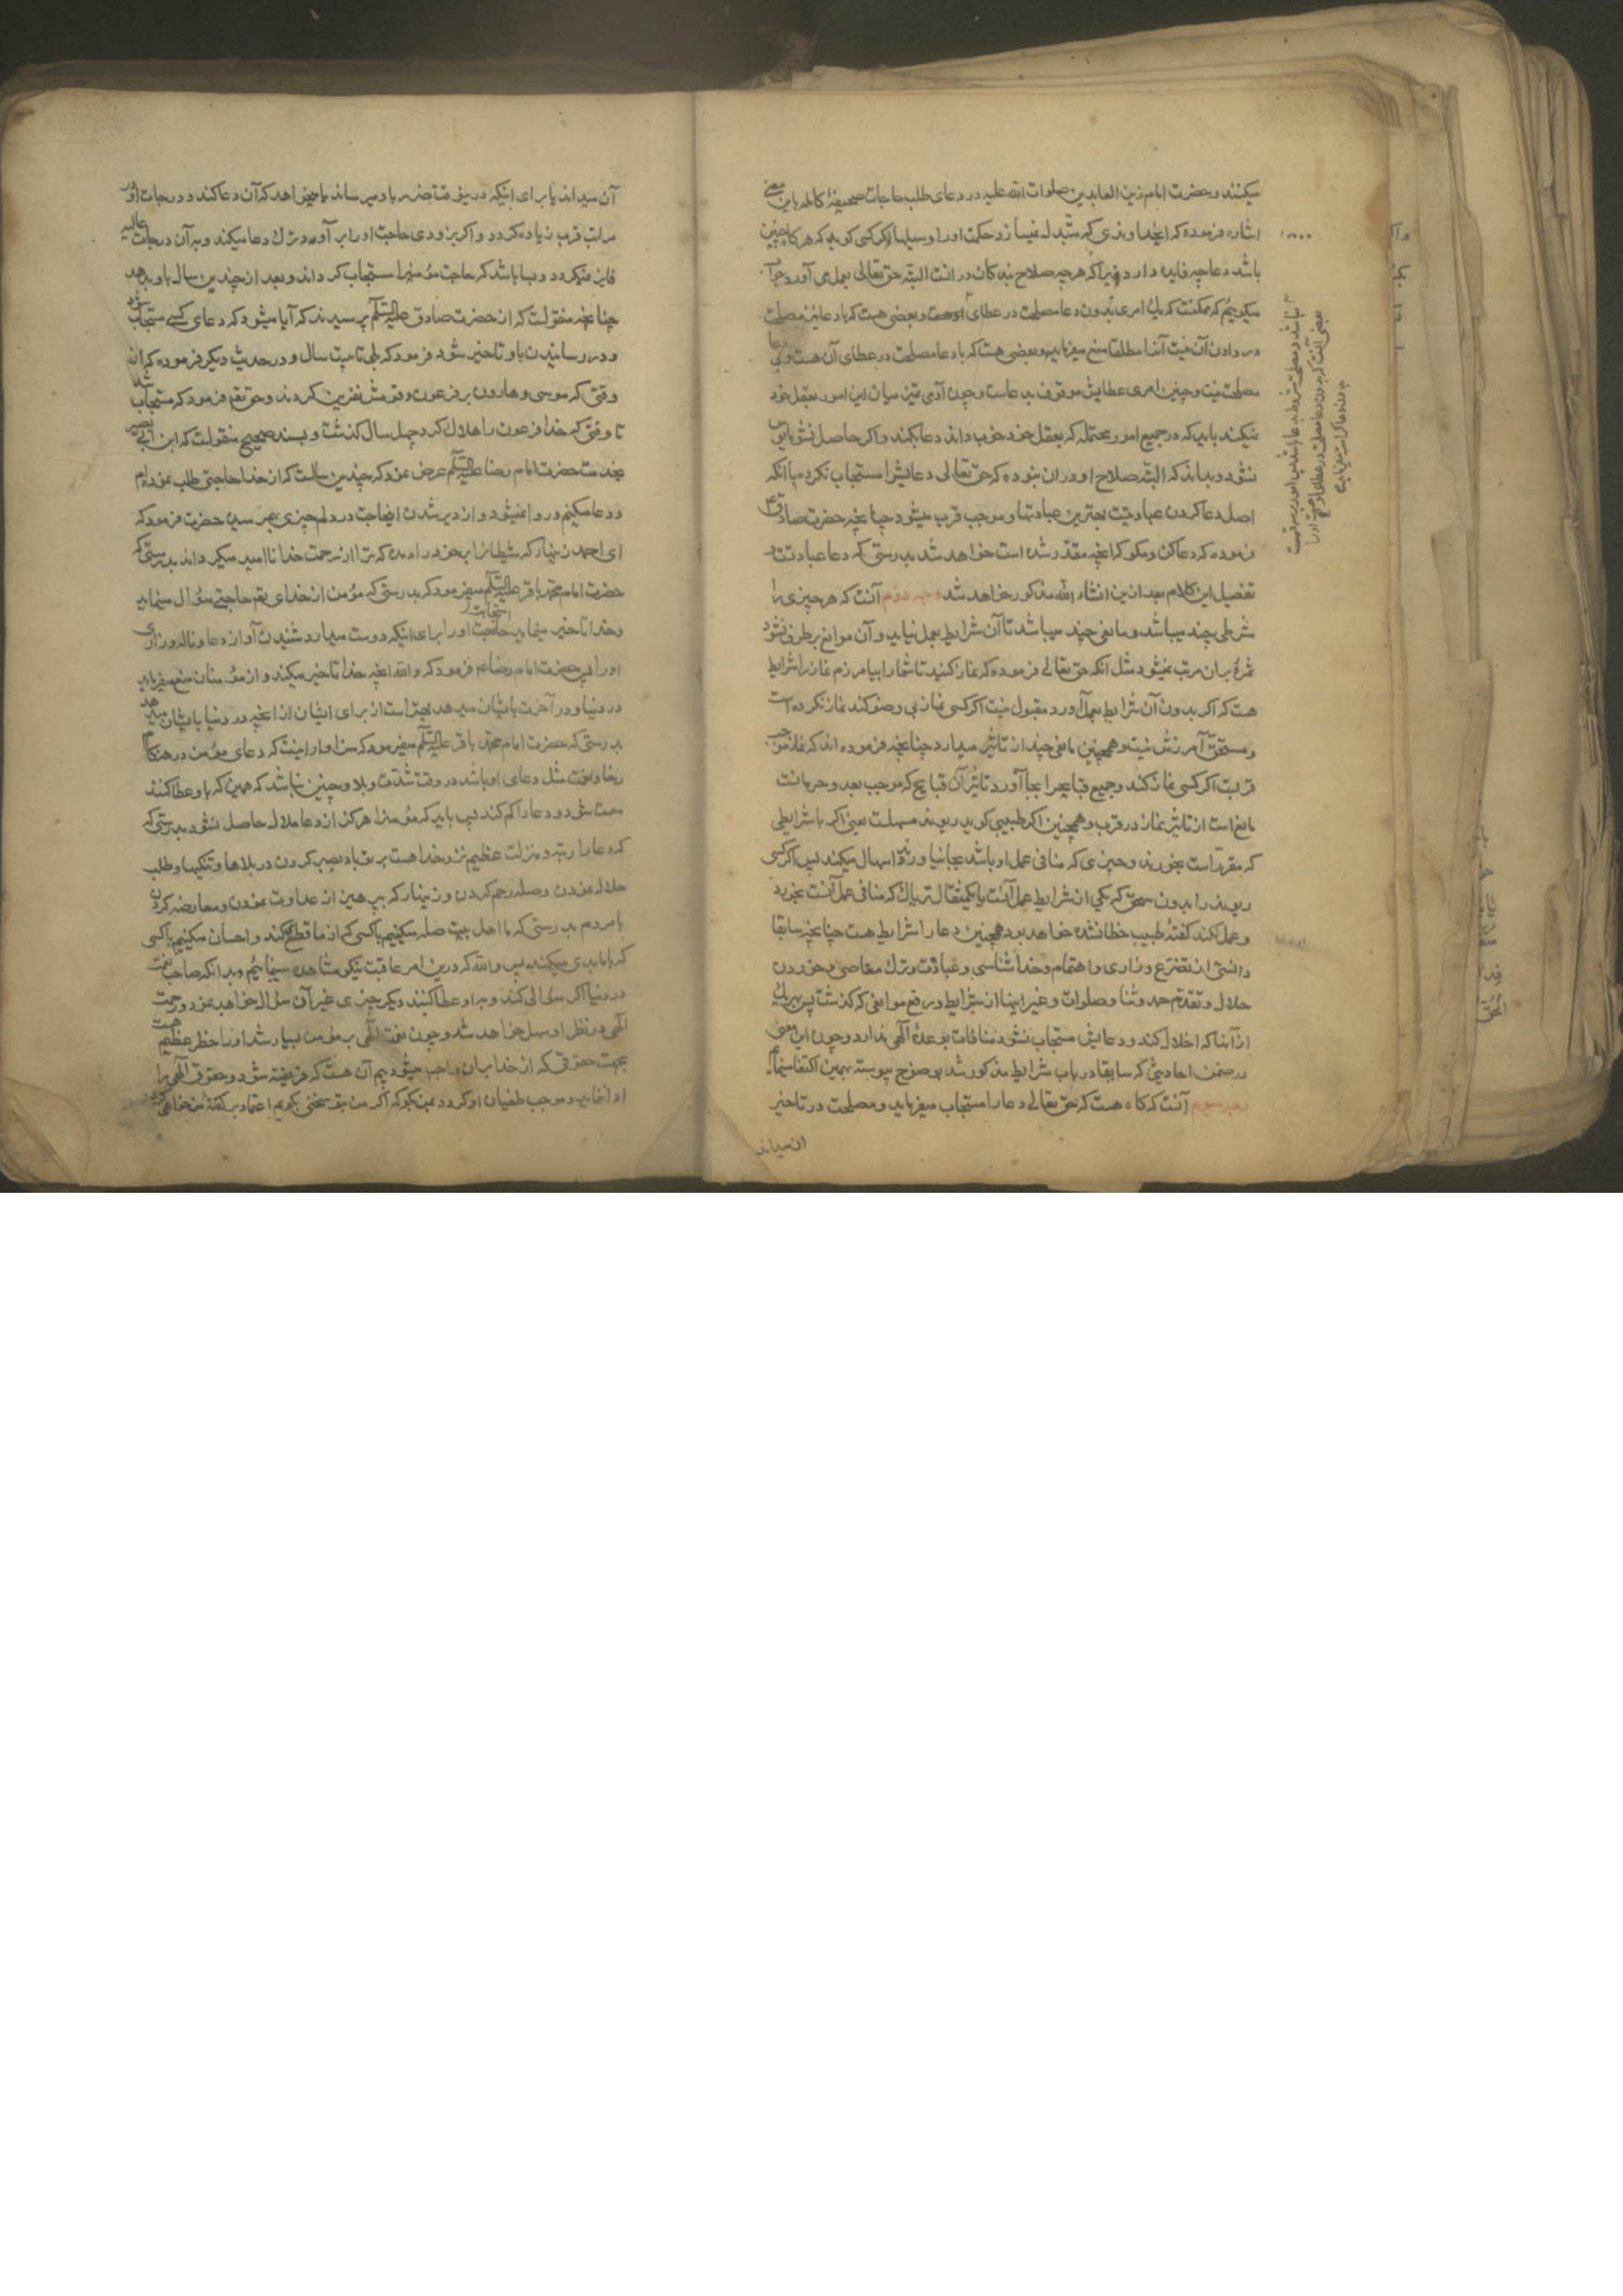 میکنند و حضرت امام زین العابدین صلوات الله علیه در دعای طلب حاجات صحیفهٔ کامله باین معنی
اشاره فرموده که ای خداوندی که متبدل نمیسازد حکمت او را وسیلها اگر کسی کوید که هرکاه چنین
باشد دعا چه فایده دارد زیرا که هرچه صلاح بندکان در انست البته حق تعالی بعمل می آورد جواب
میکوییم که ممکنست که یک امری بدون دعا مصلحت در عطای او هست و بعضی هست که با دعا نیز مصلحت
در دادن آن نیست آنرا مطلقا منع میفرماید و بعضی هست که با دعا مصلحت در عطای آن هست و بی دعا
مصلحت نیست و چنین امری عطایش موقوف بدعاست و چون آدمی تمیز میان این امور بعقل خود
نمیکند باید که در جمیع امور محتمله که بعقل خود خوب داند دعا بکند و اکر حاصل نشود مأیوس
نشود و بداند که البته صلاح او در ان نبوده که حق تعالی دعایش را مستجاب نکرده با انکه
اصل دعا کردن عبادتیست بهترین عبادتها و موجب قرب میشود چنانچه حضرت صادق ع
فرموده که دعا کن و مکو که انچه مقدر شده است خواهد شد بدرستی که دعا عبادتست و
تفصیل این کلام بعد ازین انشاء الله مذکور خواهد شد وجه دوم آنست که هر چیزی را
شرطی چند میباشد و مانعی چند میباشد تا آن شرایط بعمل نیاید و آن موانع برطرف نشود
ثمرهٔ بر ان مرتب نمیشود مثل انکه حق تعالی فرموده که نماز کنید تا شما را بیامرزم نماز را شرایط
هست که اکر بدون آن شرایط بعمل آورد مقبول نیست اکر کسی نماز بی وضو کند نماز نکرده است
و مستحق آمرزش نیست و همچنین مانعی چند از تاثیر میدارد چنانچه فرموده اند که نماز موجب
قربست اکر کسی نماز کند و جمیع قبایح را بجا آورد تاثیر آن قبایح که موجب بعد و حرمانست
مانع است از تاثیر نماز در قرب و همچنین اکر طبیبی کوید ریوند مسهلست یعنی اکر با شرایطی
که مقرر است بخورند و چیزی که منافی عمل او باشد بجا نیاورند اسهال میکند پس اکر کسی
ریوند را بدون سحق که یکی از شرایط عمل آنست یا یکمثقال تریاک که منافی عمل آنست بخورد
و عمل نکند کفتهٔ طبیب خطا نشده خواهد بود همچنین دعا را شرایط هست چنانچه سابقا
دانستی از تضرع و زاری و اهتمام و خدا شناسی و عبادت و ترک معاصی و خوردن
حلال و تقدیم حمد و ثنا و صلوات و غیر اینها از شرایط و رفع موانعی که کذشت پس بهر یک
از آنها که اخلال کند و دعایش مستجاب نشود منافات بوعدهٔ الهی ندارد و چون این معنی
در ضمن احادیثی که سابقا در باب شرایط مذکور شد بوضوح پیوسته بهمین اکتفا مینمائیم
وجه سوم آنست که کاه هست که حق تعالی دعا را مستجاب میفرماید و مصلحت در تاخیر
ان میداند
آن میداند یا برای اینکه در وقتا ضرر باو میرساند یا میخواهد که آن دعا کند و درجات او و
مراتب قرب زیاده کردد و اکر بزودی حاجت او را بر آورد ترک دعا میکند و به آن درجات عالیه
فایز نمیکردد و بسا باشد که حاجت مؤمنرا مستجاب کرداند و بعد از چندین سال باو بدهد
چنانچه منقولست که از حضرت صادق علیه السلام پرسیدند که آیا میشود که دعای کسی مستجاب شود
و در رسانیدن باو تاخیر شود فرمود که بلی تا بیست سال و در حدیث دیکر فرموده که از
وقتی که موسی و هارون بر فرعون و قومش نفرین کردند و حق تعالی فرمود که مستجاب شد
تا وقتی که خدا فرعون را هلاک کرد چهل سال کذشت و بسند صحیح منقولست که ابن ابی نصیر
بخدمت حضرت امام رضا علیه السلام عرض نمود که چندین سالست که از خدا حاجتی طلب نموده ام
و دعا میکنم و روا نمیشود و از دیر شدن این حاجت در دلم چیزی بهم رسیده حضرت فرمود که
ای احمد زینهار که شیطانرا بخود راه مده که ترا از رحمت خدا ناامید میکرداند بدرستی که
حضرت امام محمد باقر علیه السلام میفرمود که بدرستی که مؤمن از خدای تعالی حاجتی سؤال مینماید
و خدا تاخیر مینماید استجابت حاجت او را برای اینکه دوست میدارد شنیدن آواز دعا و ناله و زاری
او را پس حضرت امام رضا ع فرمود که والله انچه خدا تاخیر میکند و از مؤمنان منع میفرماید
در دنیا و در آخرت باشیان میدهد بهتر است از برای ایشان از انچه در دنیا بایشان میدهد
بدرستی که حضرت امام محمد باقر علیه السلام میفرمود که سزاوار اینست که دعای مؤمن در هنکام
رخا و نعمت مثل دعای او باشد در وقت شدت و بلا و چنین نباشد که همین که باو عطا کنند
سست شود و دعا را کم کند پس باید که مؤمنرا هرکز از دعا ملال حاصل نشود بدرستی که
که دعا را رتبه و منزلت عظیم نزد خدا هست بر تو باد بصبر کردن در بلاها و تنکیها و طلب
حلال نمودن و صلهٔ رحم کردن و زینهار که بپرهیز از عداوت نمودن و معارضه کردن
با مردم بدرستی که ما اهل بیت صله میکنیم با کسی که از ما قطع کند و احسان میکنیم با کسی
که با ما بدی میکند پس والله که درین امر عاقبت نیکو مشاهده مینمائیم و بدانکه صاحب نعمت
در دنیا اکر سؤالی کند و به او عطا کنند دیکر چیزی غیر آن سؤال خواهد نمود و رحمت
الهی در نظر او سهل خواهد شد و چون نعمت الهی بر مؤمن بسیار شد او را خطر عظیم هست
بجهت حقوقی که از خدا بر ان واجب میشود و بیم آن هست که فریفته شود و حقوق الهی را
ادا ننماید و موجب طغیان او کردد بمن بکو که اکر من بتو سخنی بکویم اعتماد بر کفتهٔ من خواهی کرد